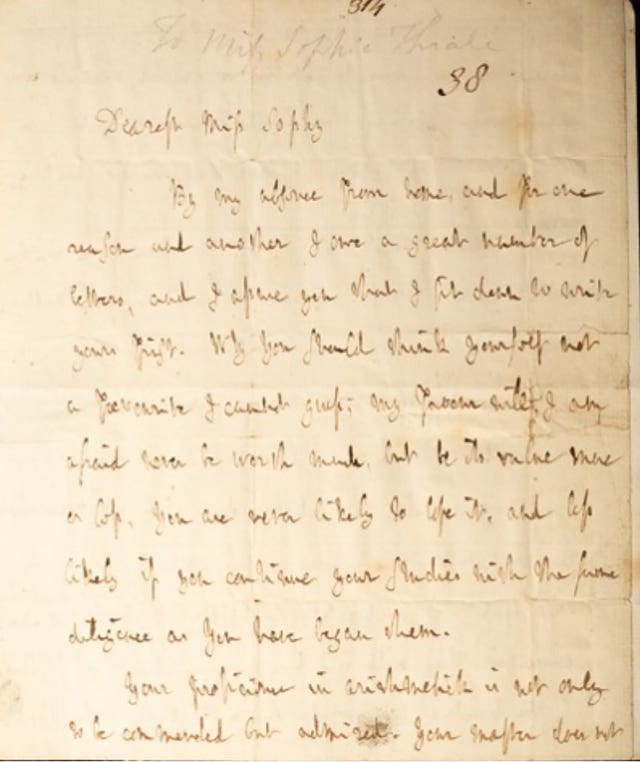 314
To Miss Sophia Thrale
38
Dearest Miss Sophy
By my absence from home, and for one
reason and another I owe a great number of
letters, and I assure you that I sit down to write
yours first. Why you should think yourself not
a favourite I cannot guess; my favour will, I am
afraid never be worth much, but be its value more
or less, you are never likely to lose it, and less
likely if you continue your studies with the same
diligence as you have begun them.
Your proficience in arithmetick is not only
to be commended but admired. Your master does not